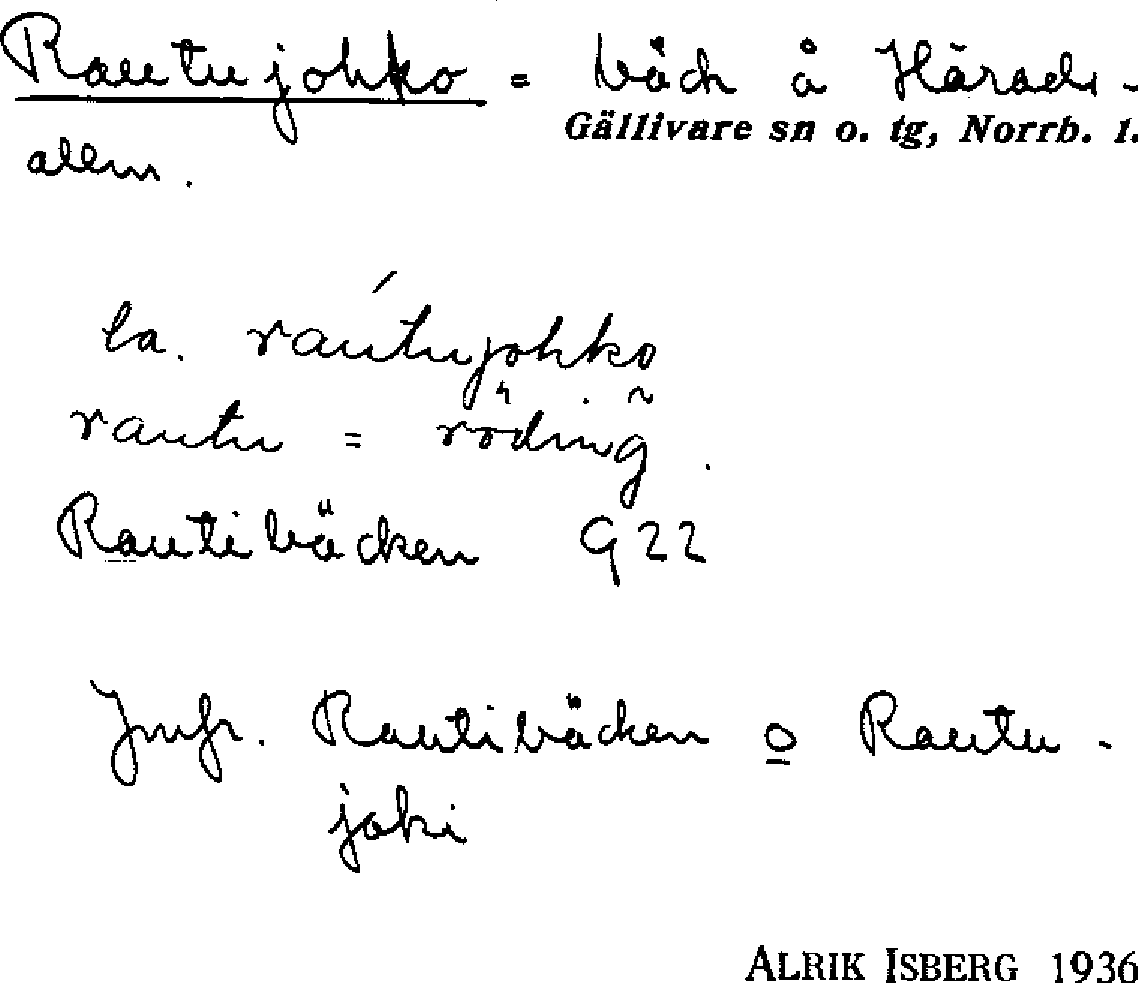 Rautujohko = bäck å Härads-
Gällivare sn o. tg, Norrb. l.
allm.
la. rau´tujohko
rautu = röding.
Rautibäcken G22
Jmfr. Rautibäcken o Rautu-
joki
ALRIK ISBERG 1936